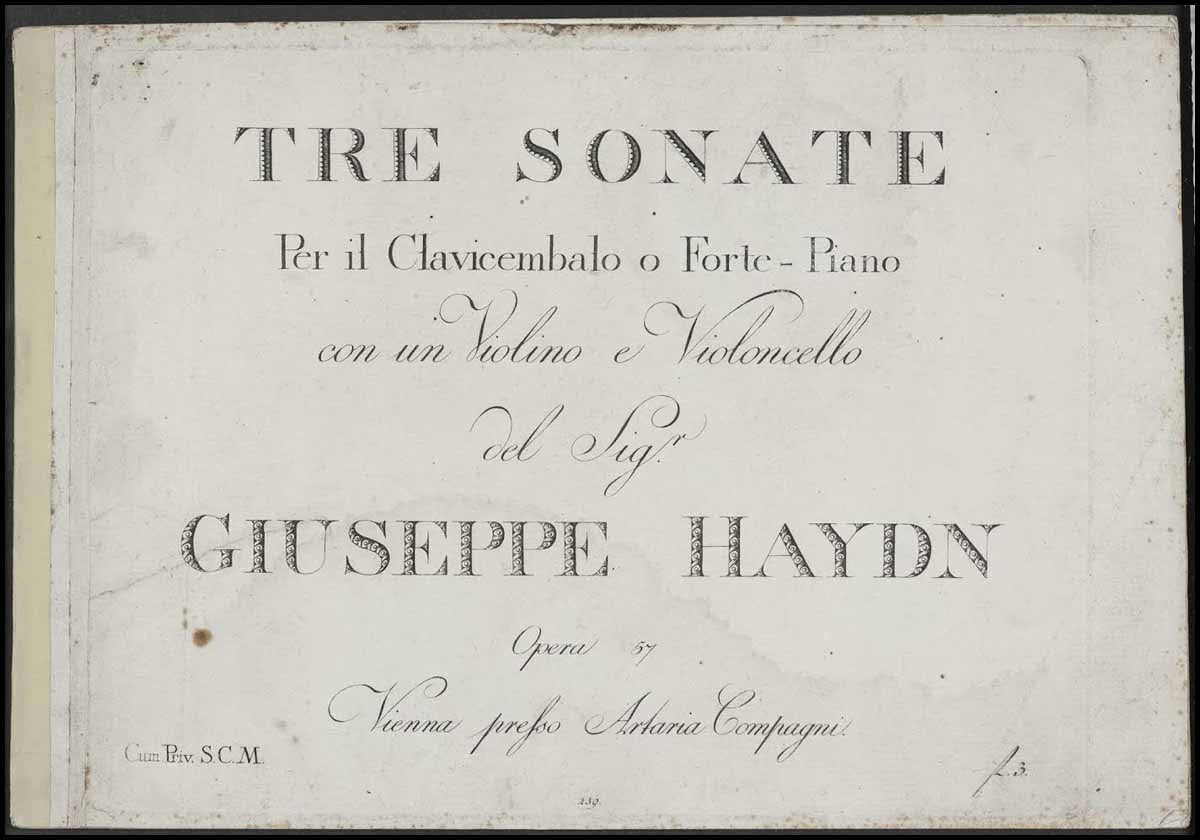 TRE SONATE
Per il Clavicembalo o Forte-Piano
con un Violino e Violoncello
del Sig.r
GIUSEPPE HAYDN
Opera 57
Vienna presso Artaria Compagni.
Cum Priv. S.C.M. f. 3.
239.